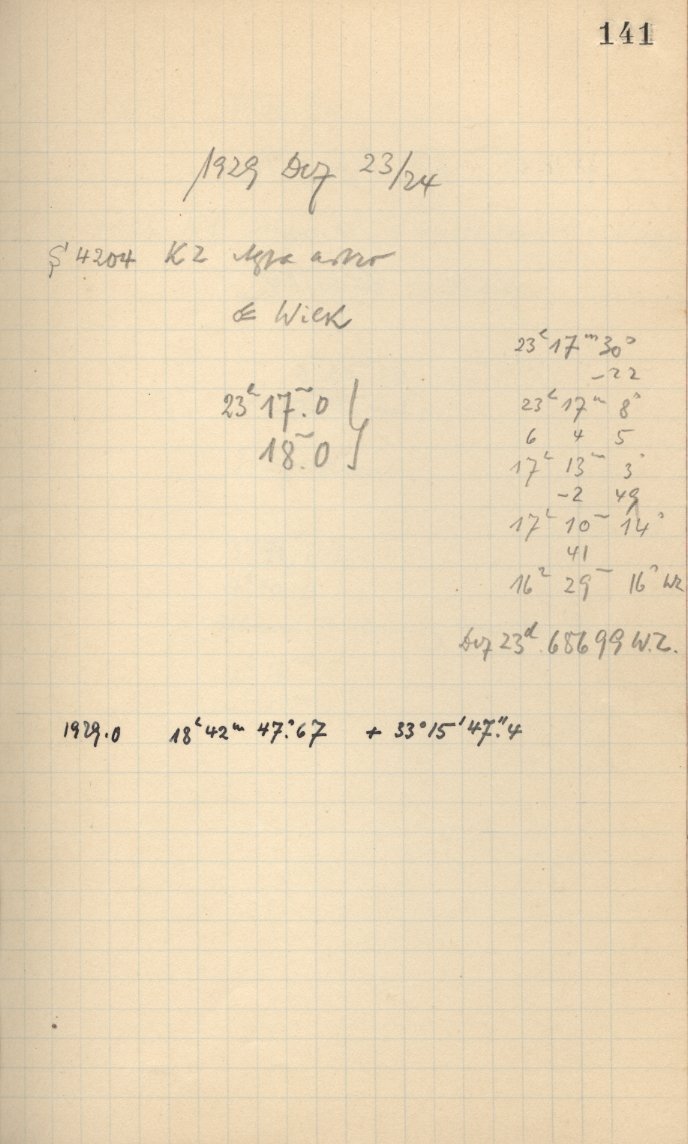 141
1929 Dez 23/24
S 4204 K2 Agfa astro
Wilk
23ʰ17ᵐ.0
18ᵐ.0
23ʰ17ᵐ30ˢ
-22
23ʰ17ᵐ 8ˢ
6 4 5
17ʰ 13ᵐ 3ˢ
-2 49
17ʰ 10ᵐ 14ˢ
41
16ʰ 29ᵐ 16ˢ WZ
Dez 23ᵈ.68699 W.Z.
1929.0 18ʰ42ᵐ 47ˢ.67 + 33°15'47".4